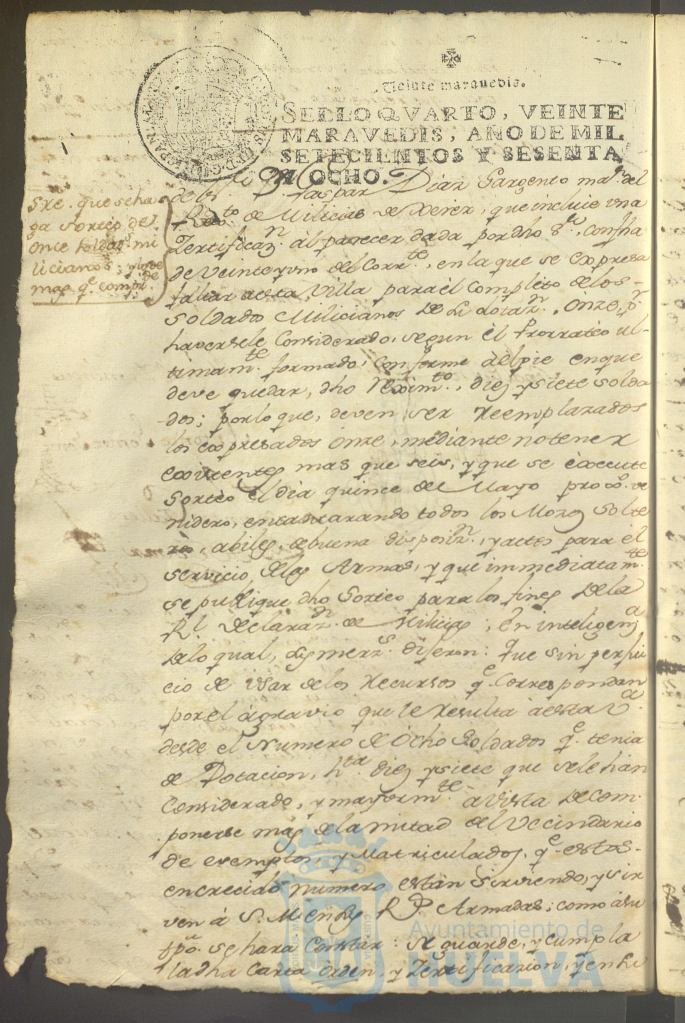 Veinte maravedis.
SELLO QVARTO, VEINTE
MARAVEDIS, AÑO DE MIL
SETECIENTOS Y SESENTA
Y OCHO.
Sre. que se ha
ga sorteo de
once soldas. mi
licianos; y lo de
mas qe. comprde.
Gaspar Diaz Sargento mar. del
Regto. de Milicias de Xerez, que incluie una
Zertificazn. al parecer dada por dho Sr., con fha
de Veinte y uno del Corrte., en la que se expresa
faltar a esta Villa para el Completo de los
Soldados Milicianos de su dotazn., Onze, pr.
haversele Considerado, segun el Prorrateo ul-
timamte. formado, Conforme al pie en que
deve quedar, dho Reximto., diez y siete solda
dos; por lo que, deven ser Reemplazados
los expresados Onze, mediante no tener
existentes mas que seis, y que se execute
Sorteo el dia quince de Mayo proxo. ve
nidero, encantarando todos los Mozos Solte
ros, abiles, de buena disposizn., y actos para el
servicio, de las Armas, y que immediatamte.
se publique dho Sorteo para los fines de la
Rl. Declarazn. de Milicias; En inteligenza.
de lo qual, sus merzs. dijeron: Que sin perjui
cio de Usar de los Recursos qe. Correspondan
por el agravio que le Resulta a esta Va.
desde el Numero de Ocho Soldados qe. tenia
de Dotacion, hta. diez y siete que se le han
Considerado, y mayormte. a vista de com
ponerse mas de la mitad del Vecindario
de exemptos, y Matriculados, qe. estos
en crecido numero estan sirviendo, y sir
ven á S. M. en Rs. Armadas; como á su
tpo. se hara Constar: Se guarde, y cumpla
la dha Carta Orden, y Zertificazion, y en su
Ayuntamiento de
HUELVA